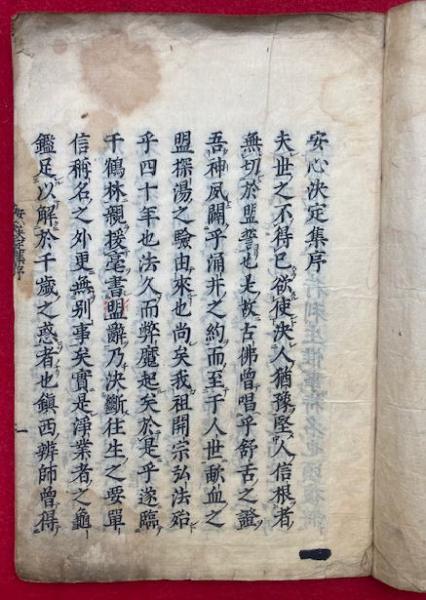 安心決定集序
夫世之不得已欲使決人猶豫堅人信根者
無切於盟誓也是故古佛曾唱乎舒舌之證
吾神夙闢乎涌井之約而至于人世歃血之
盟探湯之驗由來也尚矣我祖開宗弘法殆
乎四十年也法久而弊魔起矣於是乎遂臨
千鶴林親援毫書盟辭乃決斷往生之要單
信稱名之外更無別事矣實是淨業者之龜
鑑足以解於千歲之惑者也鎮西辨師曾得
安心決定集序
一